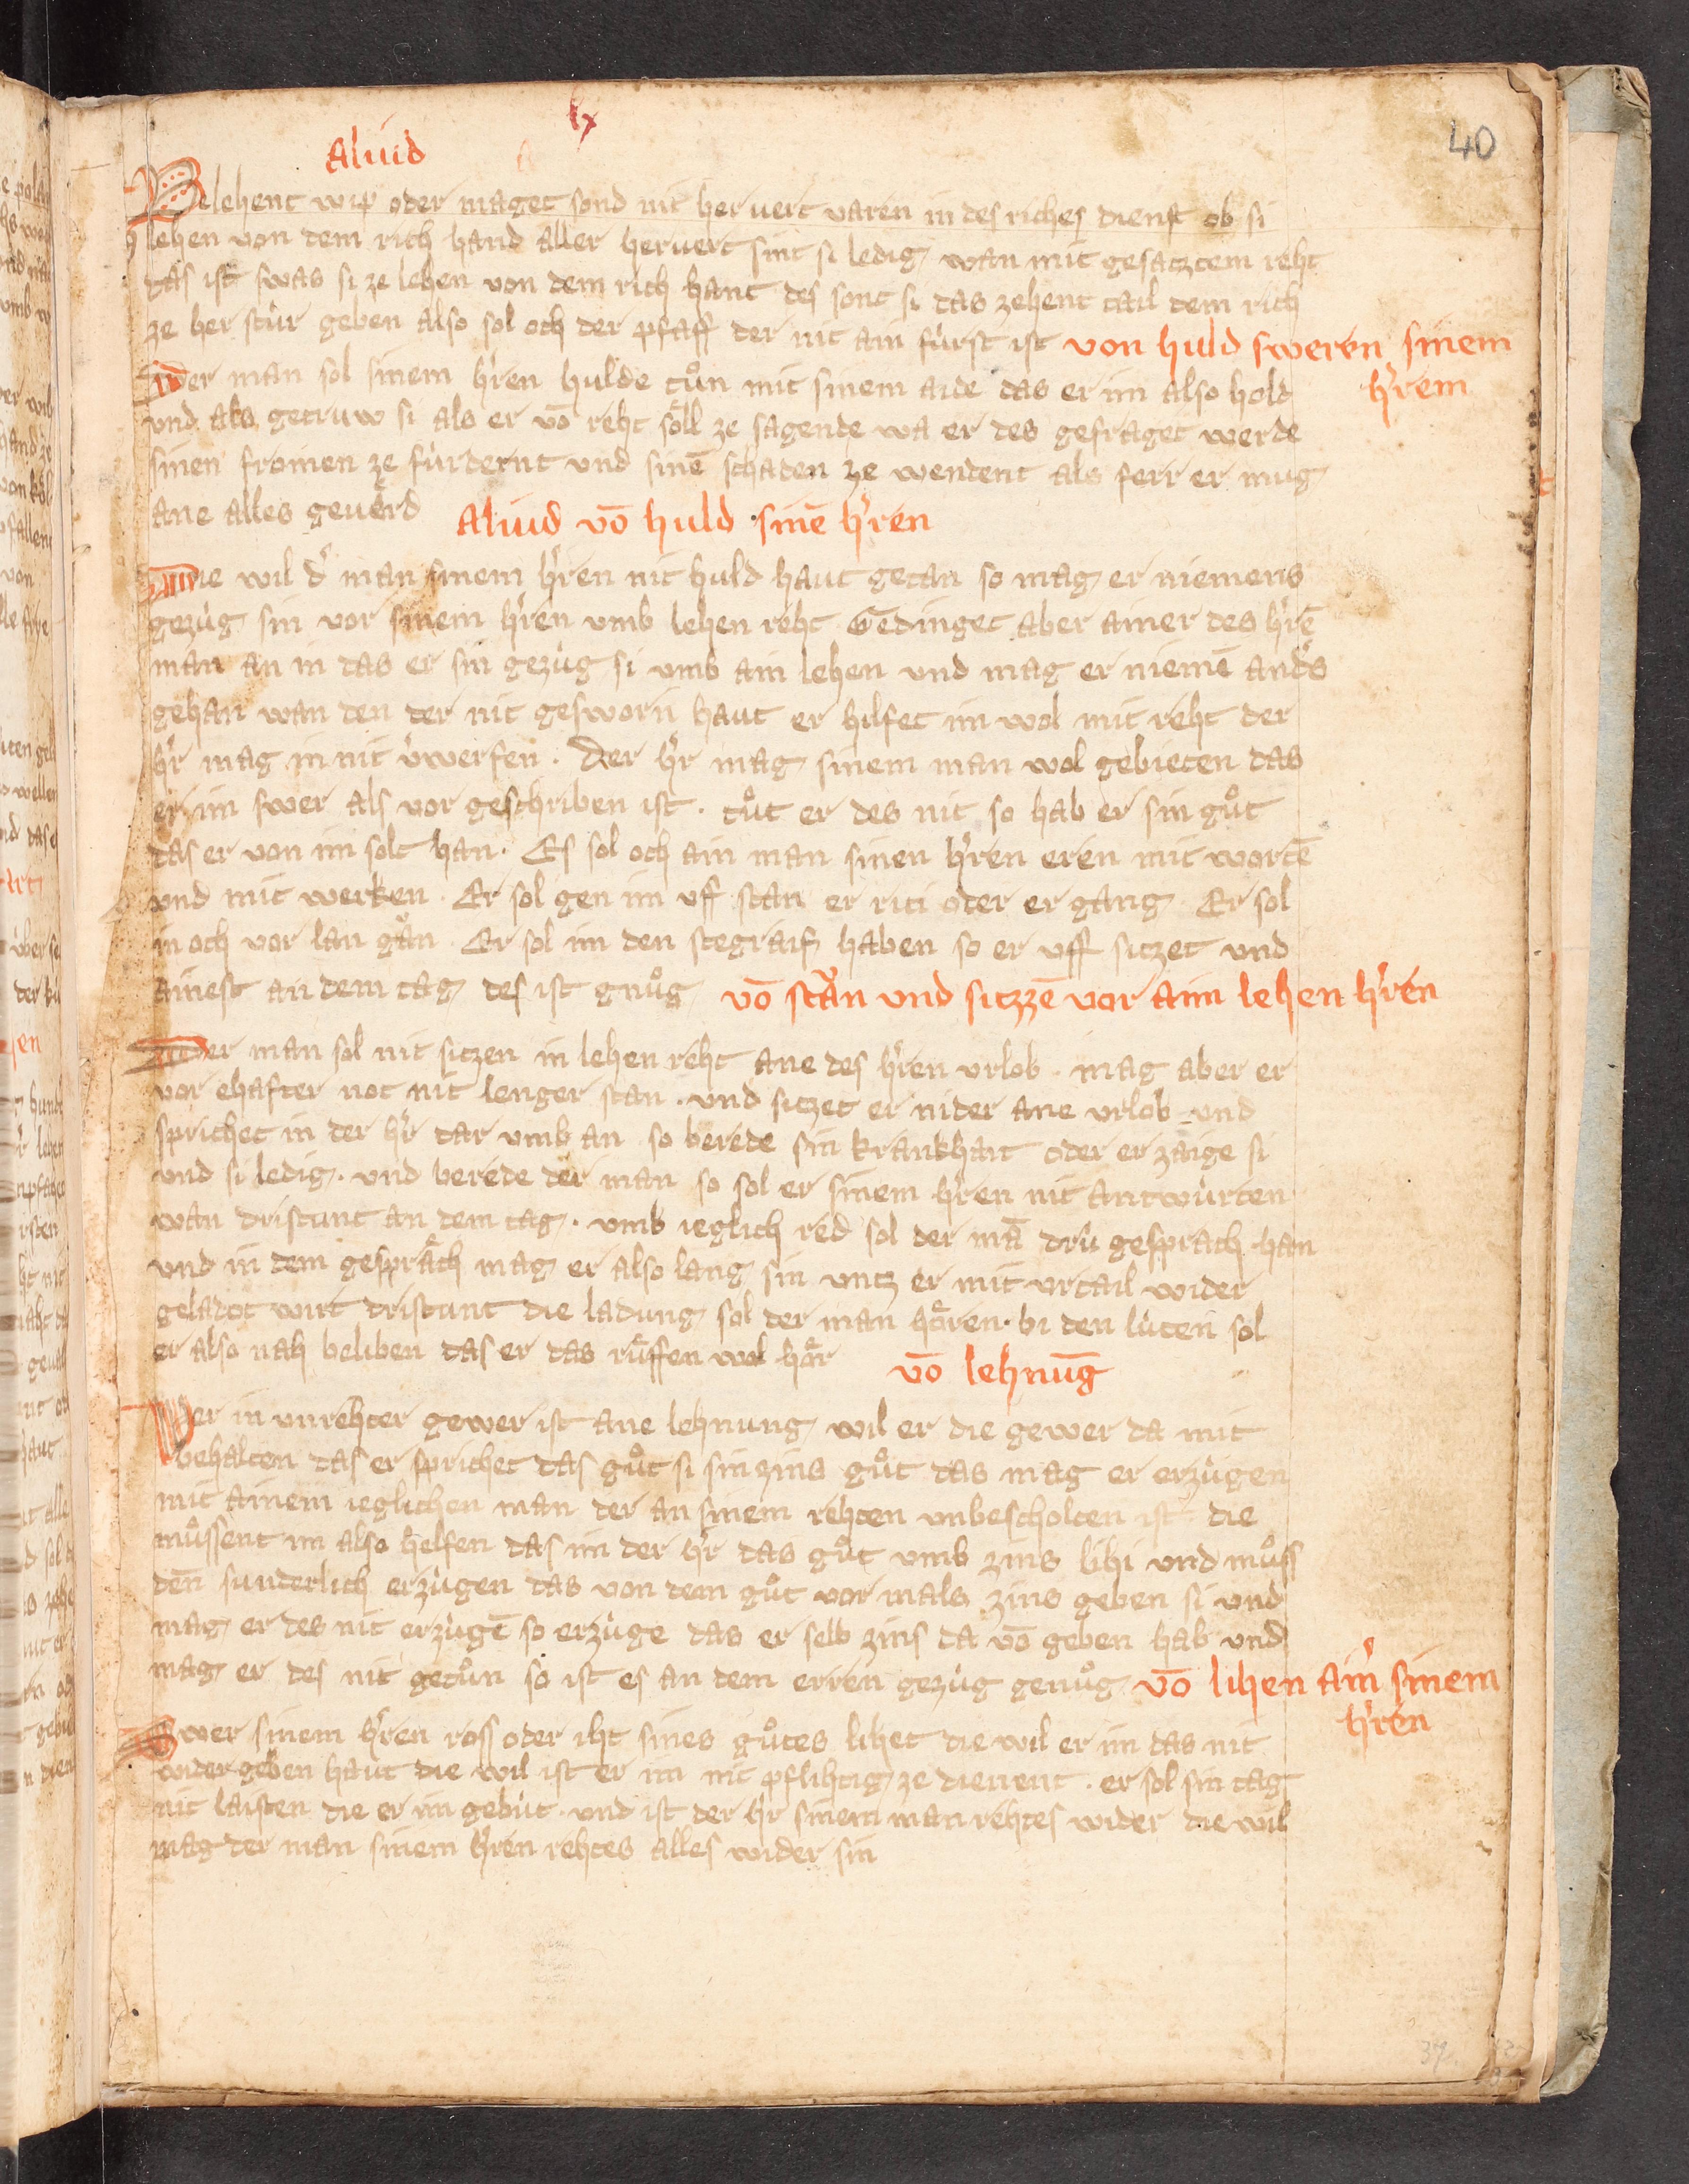 lx
40
Aliud
Belehent wip oder maget sond nit hervert varen in des riches dienst ob si
lehen von dem rich hand aller hervert sint si ledig wan mit gesatztem reht
das ist swas si ze lehen von dem rich hant des sont si das zehent tail dem rich
ze her stùr geben also sol och der pfaff der nit ain fùrst ist von huld sweren sinem
h'rem
Jeder man sol sinem h'ren hulde tůn mit sinem aide das er im also hold
und als getruw si als er võ reht soͤll ze sagende wa er des gefraget werde
sinen fromen ze fùrdernt und sinē schaden ze wendent als ferr er mug
ane alles geverd Aliud võ huld sinē h'ren
Die wil d' man sinem h'ren nit huld haut getan so mag er niemens
gezùg sin vor sinem h'ren umb lehen reht Gedinget aber ainer des h'rē
man an in das er sin gezùg si umb ain lehen und mag er niemē and's
gehan wan den der nit gesworn haut er hilfet im wol mit reht der
h'r mag in nit v'werfen. Der h'r mag sinem man wol gebieten das
er im swer als vor geschriben ist. tůt er des nit so hab er sin gůt
das er von im solt han. Es sol och ain man sinen h'ren eren mit wortē
und mit werken. Er sol gen im uff stan er riti oder er gang. Er sol
in och vor lan gān. Er sol im den stegraif haben so er uff sitzet und
ainest an dem tag des ist gnůg võ stān und sitzzē vor aim lehen h'ren
Jeder man sol nit sitzen in lehen reht ane des h'ren urlob. mag aber er
vor ehafter not nit lenger stan. und sitzet er nider ane urlob und
sprichet in der h'r dar umb an so berede sin krankhait oder erzaige si
und si ledig. und berede der man so sol er sinem h'ren nit antwùrten
wan dristunt an dem tag. umb ieglich red sol der mā drù gesprach han
und in dem gespraͤch mag er also lang sin untz er mit urtail wider
geladot wirt dristunt die ladung sol der man hoͤren. bi den lùten sol
er also nah beliben das er das růffen wol hoͤr võ lehnūg
Wer in unrehter gewer ist ane lehnung wil er die gewer da mit
behalten das er sprichet das gůt si sin zins gůt das mag er erzùgen
mit ainem ieglichen man der an sinem rehten unbescholten ist die
můssent im also helfen das im der h'r das gůt umb zins lihi und můss
deñ sunderlich erzùgen das von dem gůt vor mals zins geben si und
mag er des nit erzùgē so erzùge das er selb zins da võ geben hab und
mag er des nit getůn so ist es an dem erren gezùg genůg võ lihen aim sinem
h'ren
Swer sinem h'ren ross oder iht sines gůtes lihet die wil er im das nit
wider geben haut die wil ist er im nit pflihtig ze dienent. er sol sin tag
nit laisten die er im gebùt. und ist der h'r sinem man rehtes wider die wil
mag der man sinem h'ren rehtes alles wider sin